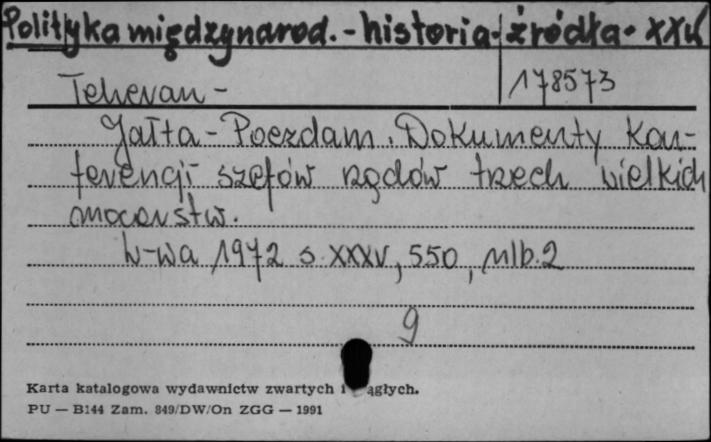 Polityka międzynarod. - historia - źródła - XX w
Teheran - 178573
Jałta - Poczdam. Dokumenty kon-
ferencji szefów rządów trzech wielkich
mocarstw.
W-wa 1972 s. XXXV, 550, nlb. 2
9
Karta katalogowa wydawnictw zwartych i ągłych.
PU — B144 Zam. 849/DW/On ZGG — 1991